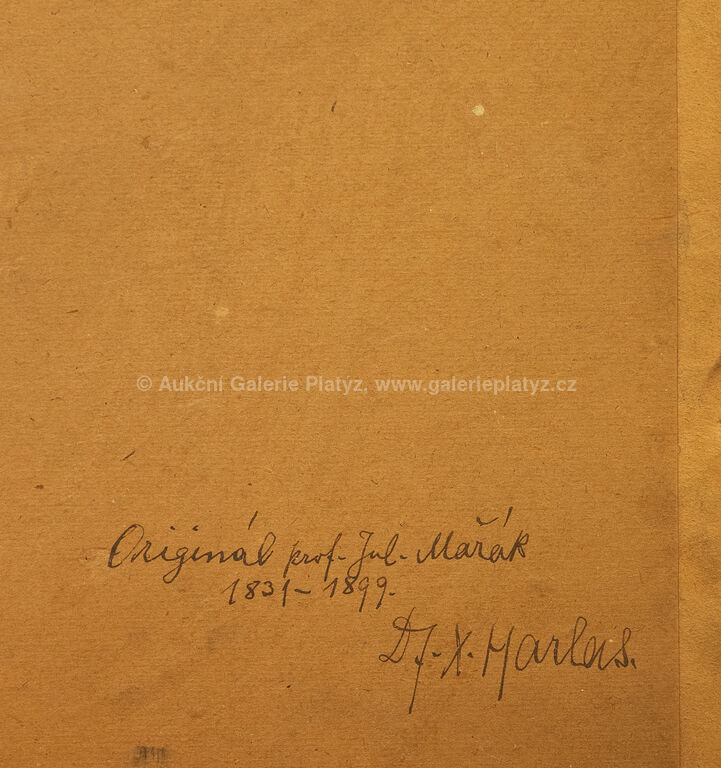 © Aukční Galerie Platýz, www.galerieplatyz.cz
Originál prof. Jul. Mařák
1831–1899.
Dr. F. X. Harlas.